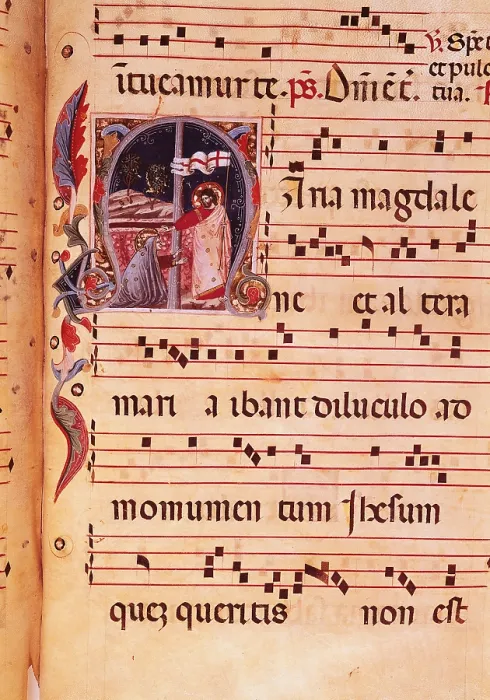 ītueamur te. ps. Dm̄e c̄c̄. V. Spe
et pulc
tua.
Aria magdale
ne et al tera
mari a ibant diluculo ad
momumen tum Jhesum
quez queritis non est